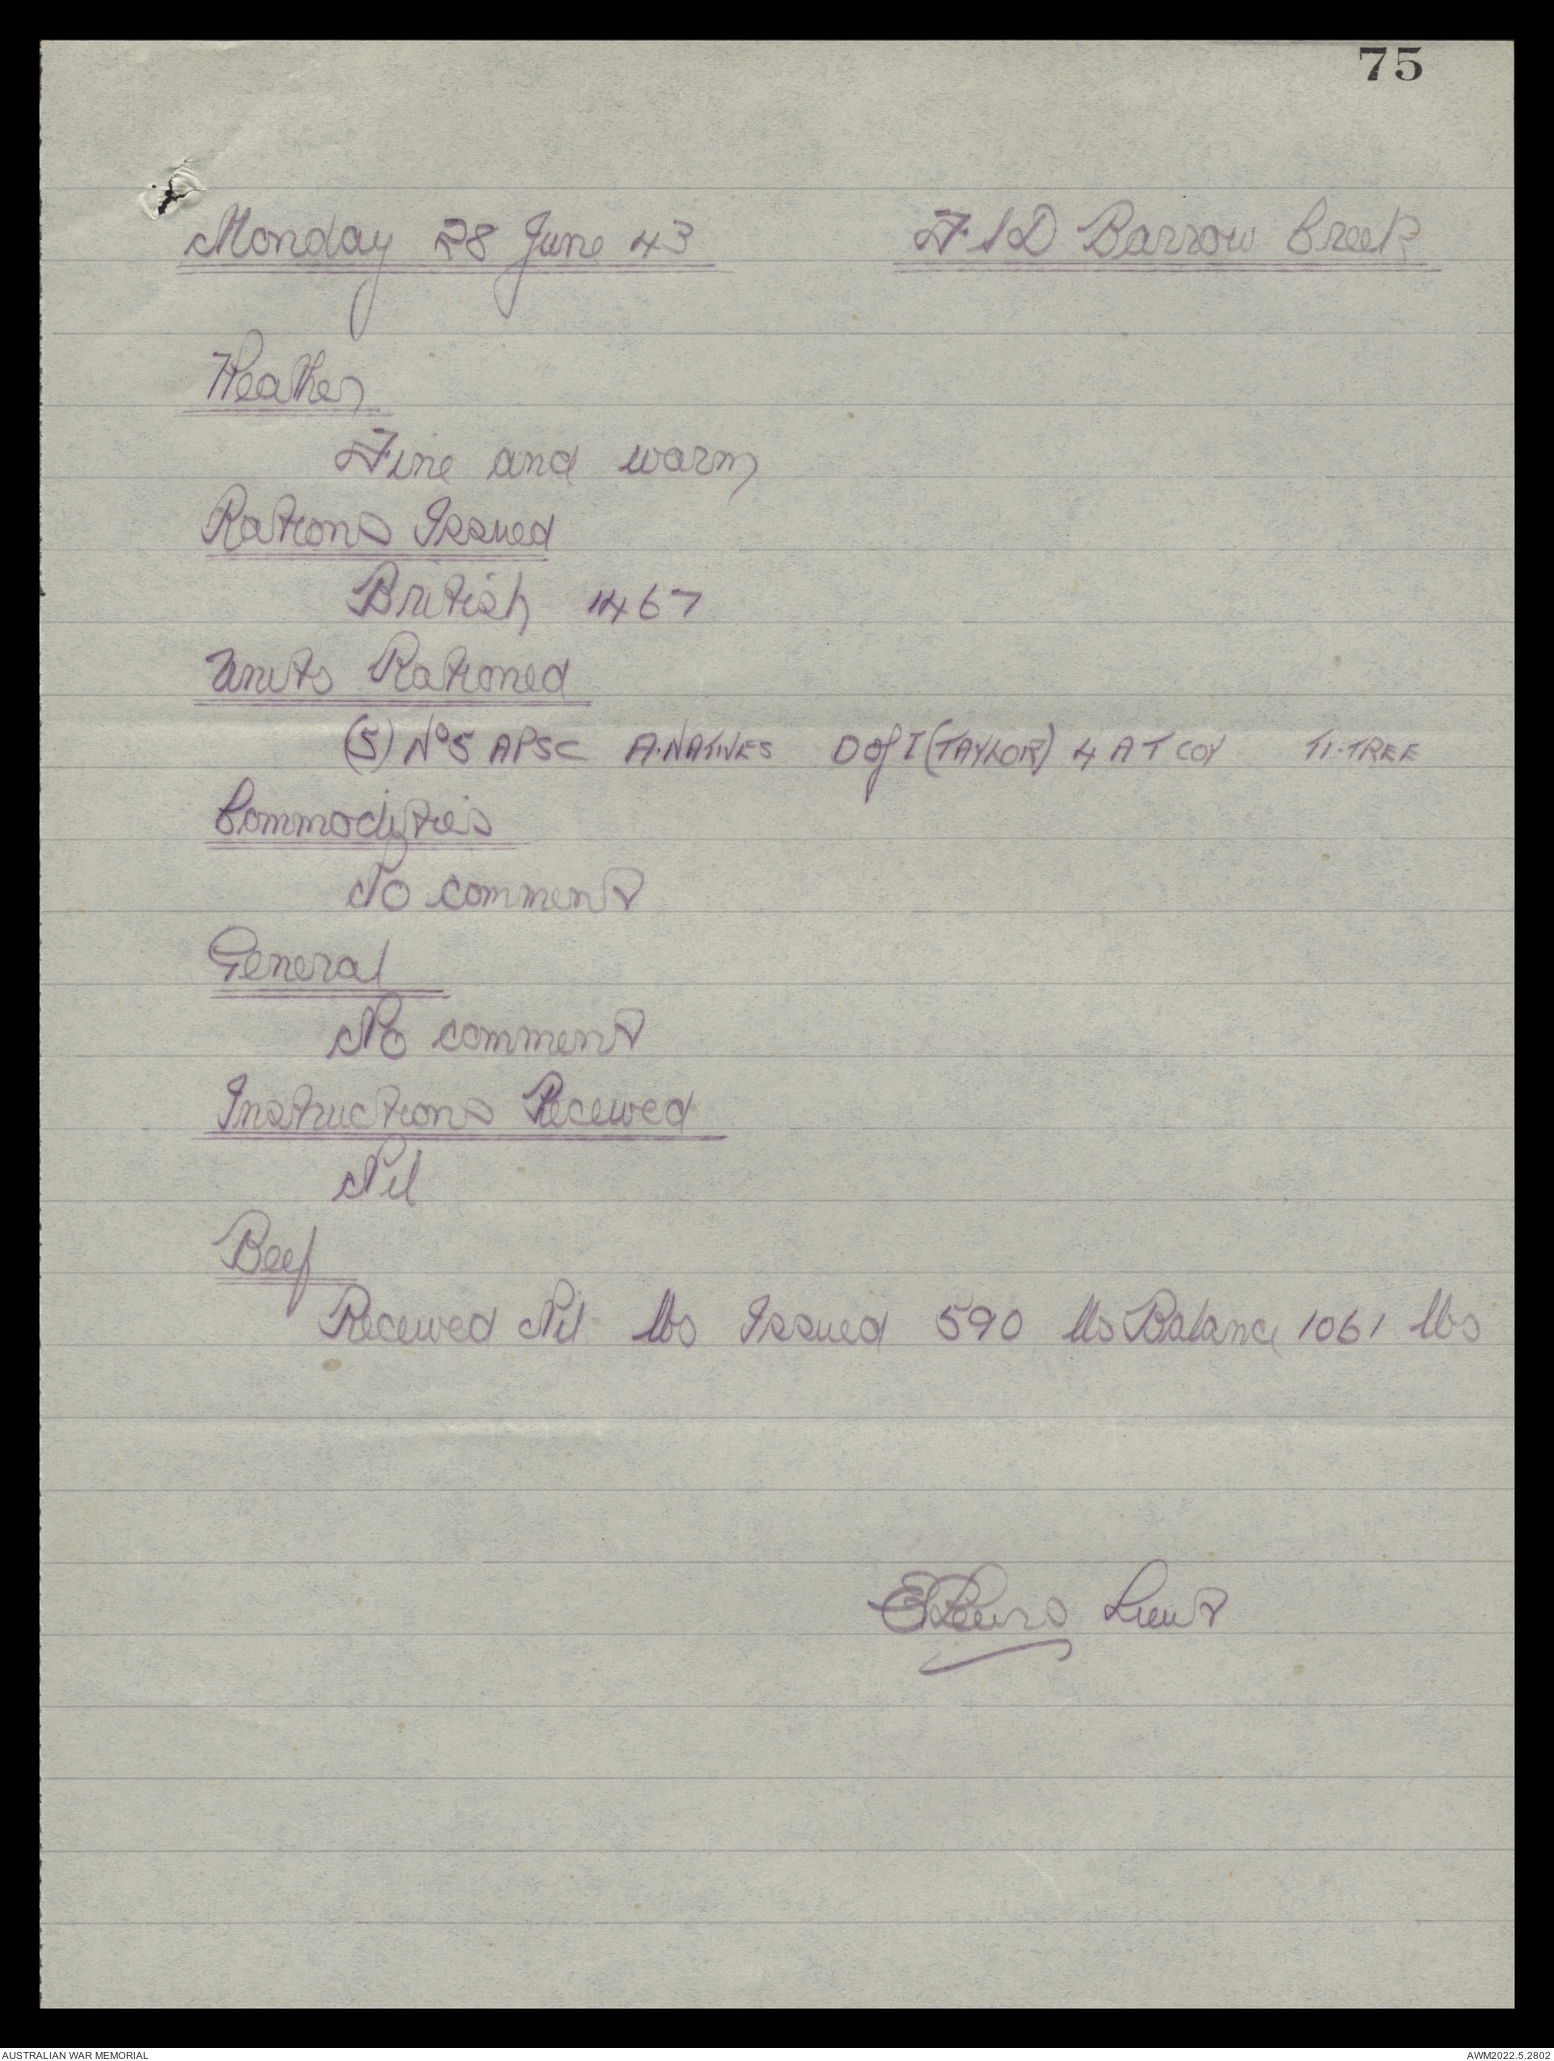 75
Monday 28 June 43 FSD Barrow Creek
Weather
Fine and warm
Rations Issued
British 1467
Units Rationed
(5) No 5 APSC A.NATIVES D of I (TAYLOR) 4 A T COY TI-TREE
Commodities
No comment
General
No comment
Instructions Received
Nil
Beef
Received Nil lbs Issued 590 lbs Balance 1061 lbs
Lieut
AUSTRALIAN WAR MEMORIAL AWM2022.5.2802